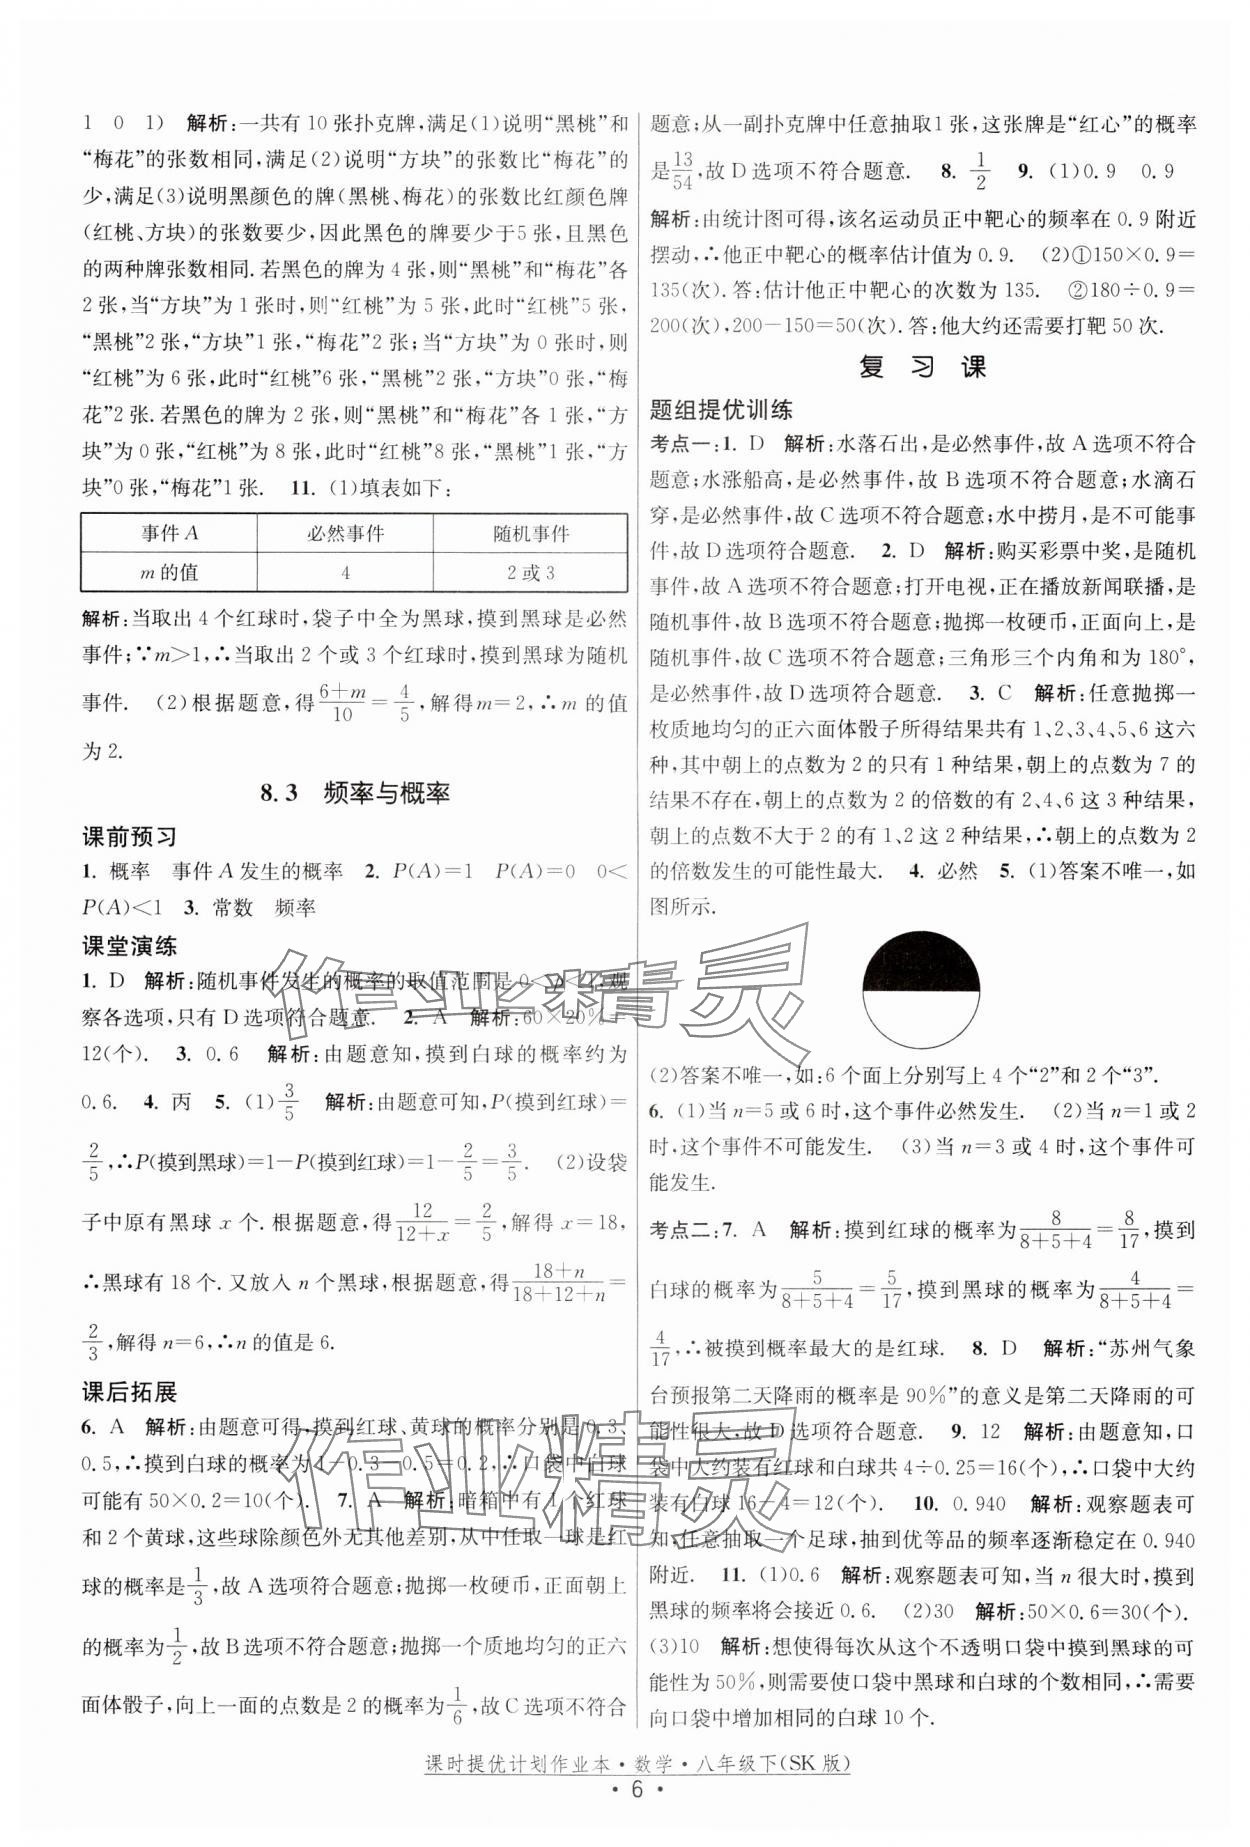 1 0 1) 解析:一共有 10 张扑克牌,满足(1)说明“黑桃”和
“梅花”的张数相同,满足(2)说明“方块”的张数比“梅花”的
少,满足(3)说明黑颜色的牌(黑桃、梅花)的张数比红颜色牌
(红桃、方块)的张数要少,因此黑色的牌要少于5 张,且黑色
的两种牌张数相同.若黑色的牌为 4 张,则“黑桃”和“梅花”各
2 张,当“方块”为 1 张时,则“红桃”为 5 张,此时“红桃”5 张,
“黑桃”2 张,“方块”1 张,“梅花”2 张;当“方块”为 0 张时,则
“红桃”为 6 张,此时“红桃”6 张,“黑桃”2 张,“方块”0 张,“梅
花”2 张.若黑色的牌为 2 张,则“黑桃”和“梅花”各 1 张,“方
块”为 0 张,“红桃”为 8 张,此时“红桃”8 张,“黑桃”1 张,“方
块”0 张,“梅花”1 张. 11. (1)填表如下:
事件 A 必然事件 随机事件
m 的值 4 2 或 3
解析:当取出 4 个红球时,袋子中全为黑球,摸到黑球是必然
事件;∵m>1,∴当取出 2 个或 3 个红球时,摸到黑球为随机
事件. (2)根据题意,得(6+m)/10=4/5,解得m=2,∴m 的值
为 2.
8.3 频率与概率
课前预习
1. 概率 事件 A 发生的概率 2. P(A)=1 P(A)=0 0<
P(A)<1 3. 常数 频率
课堂演练
1. D 解析:随机事件发生的概率的取值范围是 0<p<1,观
察各选项,只有 D 选项符合题意. 2. A 解析:60×20%=
12(个). 3. 0.6 解析:由题意知,摸到白球的概率约为
0.6. 4. 丙 5. (1)3/5 解析:由题意可知,P(摸到红球)=
2/5,∴P(摸到黑球)=1-P(摸到红球)=1-2/5=3/5. (2)设袋
子中原有黑球 x 个.根据题意,得12/(12+x)=2/5,解得 x=18,
∴黑球有 18 个.又放入 n 个黑球,根据题意,得(18+n)/(18+12+n)=
2/3,解得 n=6,∴n 的值是 6.
课后拓展
6. A 解析:由题意可得,摸到红球、黄球的概率分别是 0.3、
0.5,∴摸到白球的概率为 1-0.3-0.5=0.2,∴口袋中白球
可能有 50×0.2=10(个). 7. A 解析:暗箱中有 1 个红球
和 2 个黄球,这些球除颜色外无其他差别,从中任取一球是红
球的概率是1/3,故 A 选项符合题意;抛掷一枚硬币,正面朝上
的概率为1/2,故 B 选项不符合题意;抛掷一个质地均匀的正六
面体骰子,向上一面的点数是 2 的概率为1/6,故 C 选项不符合
题意;从一副扑克牌中任意抽取1 张,这张牌是“红心”的概率
是13/54,故 D 选项不符合题意. 8. 1/2 9. (1)0.9 0.9
解析:由统计图可得,该名运动员正中靶心的频率在 0.9 附近
摆动,∴他正中靶心的概率估计值为 0.9. (2)①150×0.9=
135(次).答:估计他正中靶心的次数为 135. ②180÷0.9=
200(次),200-150=50(次).答:他大约还需要打靶 50 次.
复 习 课
题组提优训练
考点一:1. D 解析:水落石出,是必然事件,故 A 选项不符合
题意;水涨船高,是必然事件,故 B 选项不符合题意;水滴石
穿,是必然事件,故 C 选项不符合题意;水中捞月,是不可能事
件,故 D 选项符合题意. 2. D 解析:购买彩票中奖,是随机
事件,故 A 选项不符合题意;打开电视,正在播放新闻联播,是
随机事件,故 B 选项不符合题意;抛掷一枚硬币,正面向上,是
随机事件,故 C 选项不符合题意;三角形三个内角和为 180°,
是必然事件,故 D 选项符合题意. 3. C 解析:任意抛掷一
枚质地均匀的正六面体骰子所得结果共有 1、2、3、4、5、6 这六
种,其中朝上的点数为 2 的只有 1 种结果,朝上的点数为 7 的
结果不存在,朝上的点数为 2 的倍数的有 2、4、6 这 3 种结果,
朝上的点数不大于 2 的有 1、2 这 2 种结果,∴朝上的点数为 2
的倍数发生的可能性最大. 4. 必然 5. (1)答案不唯一,如
图所示.
(2)答案不唯一,如:6 个面上分别写上 4 个“2”和 2 个“3”.
6. (1)当 n=5 或 6时,这个事件必然发生. (2)当 n=1 或 2
时,这个事件不可能发生. (3)当 n=3 或 4 时,这个事件可
能发生.
考点二:7. A 解析:摸到红球的概率为8/(8+5+4)=8/17,摸到
白球的概率为5/(8+5+4)=5/17,摸到黑球的概率为4/(8+5+4)=
4/17,∴被摸到概率最大的是红球. 8. D 解析:“苏州气象
台预报第二天降雨的概率是 90%”的意义是第二天降雨的可
能性很大,故 D 选项符合题意. 9. 12 解析:由题意知,口
袋中大约装有红球和白球共 4÷0.25=16(个),∴口袋中大约
装有白球 16-4=12(个). 10. 0.940 解析:观察题表可
知,任意抽取一个足球,抽到优等品的频率逐渐稳定在 0.940
附近. 11. (1)0.6 解析:观察题表可知,当 n 很大时,摸到
黑球的频率将会接近 0.6. (2)30 解析:50×0.6=30(个).
(3)10 解析:想使得每次从这个不透明口袋中摸到黑球的可
能性为 50%,则需要使口袋中黑球和白球的个数相同,∴需要
向口袋中增加相同的白球 10 个.
作业精灵
作业精灵
课时提优计划作业本·数学·八年级下(SK 版)
· 6 ·